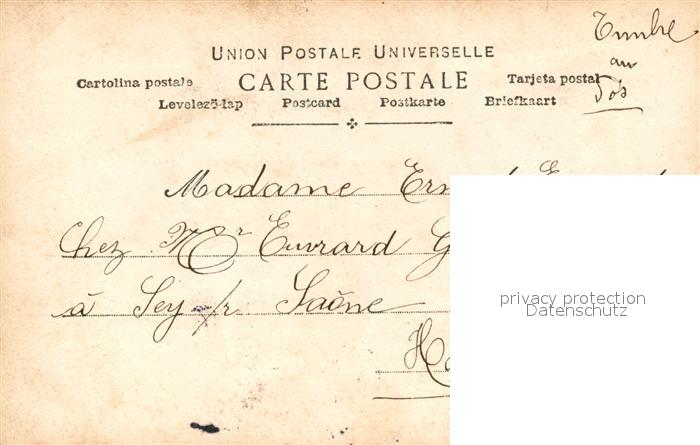 Timbre
au
Dos
UNION POSTALE UNIVERSELLE
Cartolina postale CARTE POSTALE Tarjeta postal
Levelező-lap Postcard Postkarte Briefkaart
Madame
chez Mr Euvrard
à Sey s/r Saône
privacy protection
Datenschutz